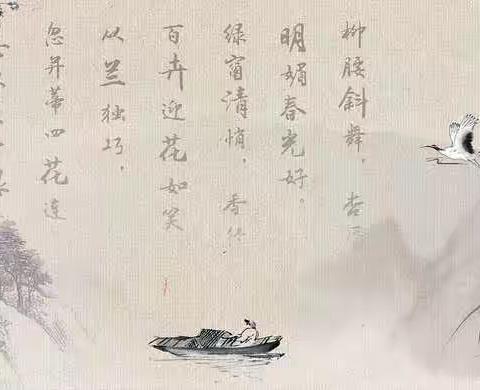 柳腰斜舞，杏
明媚春光好。
绿窗清悄，香
百卉迎花如笑
丛兰独巧，
忽并蒂四花连